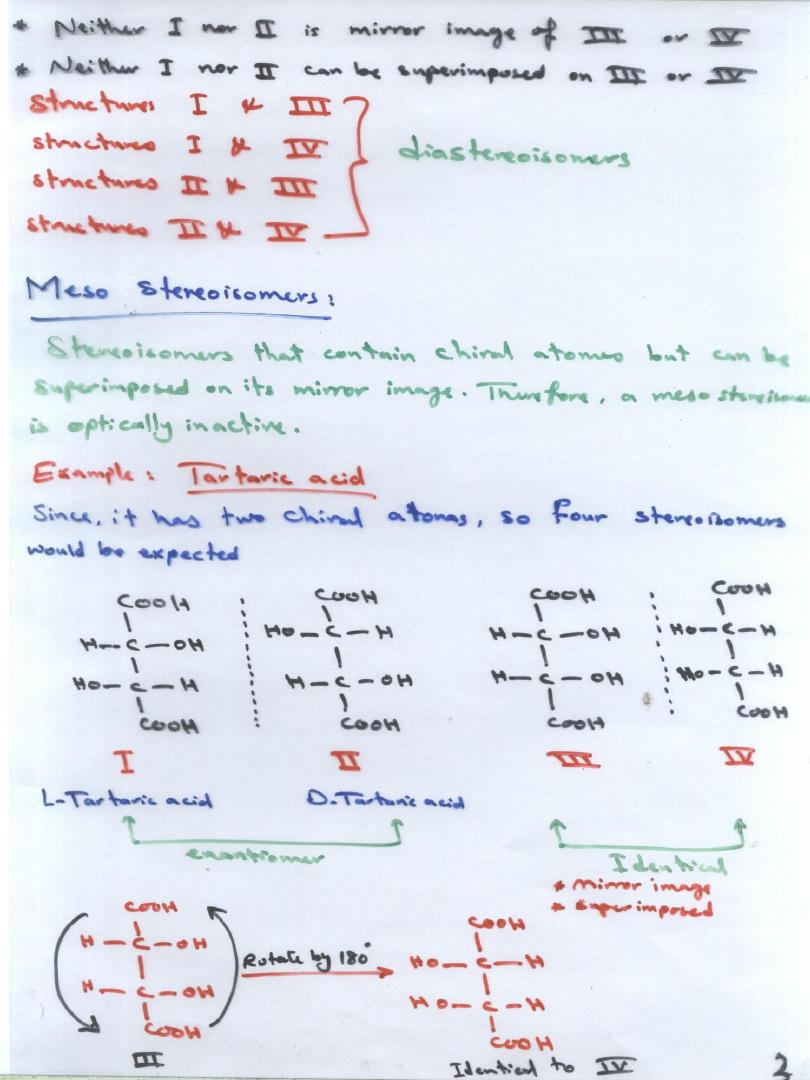 * Neither I nor II is mirror image of III or IV
* Neither I nor II can be superimposed on III or IV
structures I & III
structures I & IV
structures II & III
structures II & IV
diastereoisomers
Meso Stereoisomers:
Stereoisomers that contain chiral atomes but can be
superimposed on its mirror image. Therefore, a meso
is optically inactive.
Example: Tartaric acid
Since, it has two chiral atoms, so four stereoisomers
would be expected
COOH COOH COOH COOH
H-C-OH HO-C-H H-C-OH HO-C-H
HO-C-H H-C-OH H-C-OH HO-C-H
COOH COOH COOH COOH
I II III IV
L-Tartaric acid D-Tartaric acid
enantiomer Identical
* mirror image
* superimposed
COOH COOH
H-C-OH Rotate by 180° HO-C-H
H-C-OH HO-C-H
COOH COOH
III Identical to IV
2